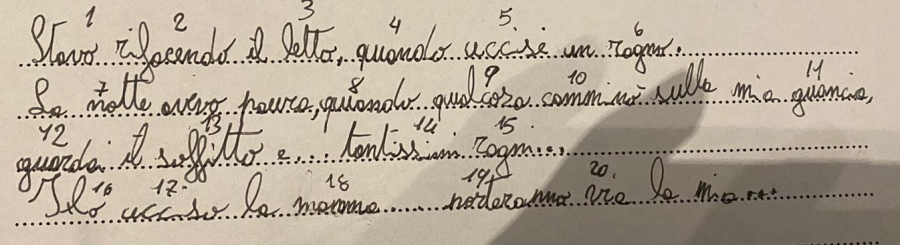 1 2 3 4 5 6
Stavo rifacendo il letto, quando uccisi un ragno.
7 8 9 10 11
La notte avevo paura, quando qualcosa camminò sulla mia guancia,
12 13 14 15
guardai il soffitto e... tantissimi ragni...
16 17 18 19 20
Ho ucciso la mamma.... via la mia...